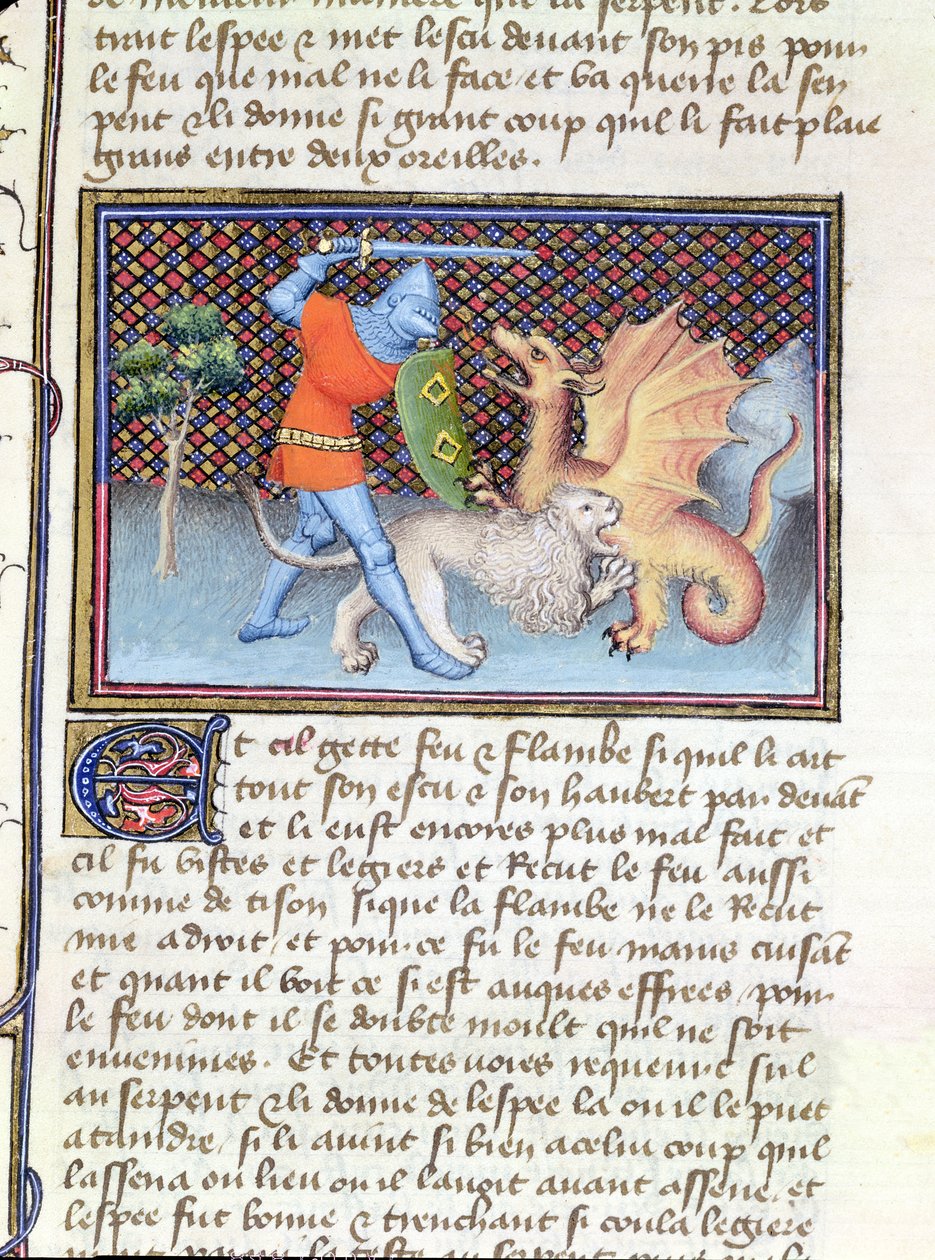 de meilleur maniere que la serpent. Lors
trait lespee & met lescu deuant son pis pour
le feu que mal ne li face et va querre la ser
pent & li donne si grant coup quil li fait plaie
grans entre deux oreilles.
Et cil gette feu & flambe si quil li art
tout son escu & son haubert par deuāt
et li eust encores plus mal fait et
cil fu vistes et legiers et Recut le feu aussi
comme de tison si que la flambe ne le Recut
mie a droit et pour ce fu le feu mains cuisāt
et quant il voit ce si est auques effrees pour
le feu dont il se doubte moult quil ne soit
enuenimes. Et toutes uoies requeurt sul
au serpent & li donne de lespee la ou il le puet
ataindre si li auint si bien a celui coup quil
lassena ou lieu ou il lauoit auant assene. et
lespee fut bonne & trenchant si coula legiere
ment parmi la teste au serpent